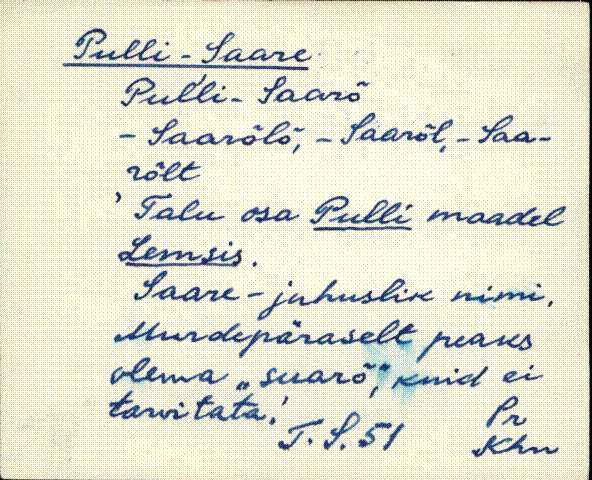 Pulli-Saare
Pulli-Saarõ
-Saarõlõ, -Saarõl, -Saa-
rõlt
'Talu osa Pulli maadel
Lemsis.
Saare - juhuslik nimi.
Murdepäraselt peaks
olema „suarõ", kuid ei
tarvitata.'
T. S. 51
Pr
Khn